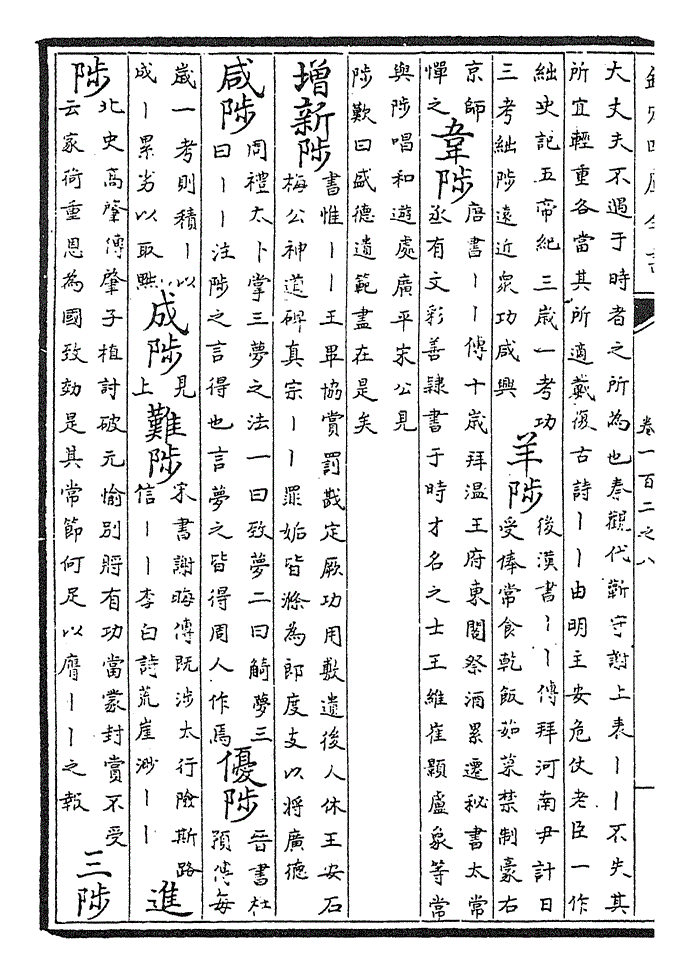 欽定四庫全書 卷一百二之八
大丈夫不遇于時者之所為也秦觀代蘄守謝上表丨丨不失其
所宜輕重各當其所適戴復古詩丨丨由明主安危仗老臣一作
絀史記五帝紀三歲一考功
三考絀陟遠近眾功咸興
羊陟
後漢書丨丨傳拜河南尹計日
受俸常食乾飯茹菜禁制豪右
京師
憚之
韋陟
唐書丨丨傳十歲拜温王府東閣祭酒累遷秘書太常
丞有文彩善隸書于時才名之士王維崔顥盧象等常
與陟唱和遊處廣平宋公見
陟歎曰盛德遺範盡在是矣
增新陟
書惟丨丨王畢協賞罰戡定厥功用敷遺後人休王安石
梅公神道碑真宗丨丨罪姤皆滌為郎度支以將廣德
咸陟
周禮太卜掌三夢之法一曰致夢二曰觭夢三
曰丨丨注陟之言得也言夢之皆得周人作焉
優陟
晉書杜
預傳每
歲一考則積丨以
成丨累劣以取黜
成陟
見
上
難陟
宋書謝晦傳既涉太行險斯路
信丨丨李白詩荒崖渺丨丨
進
陟
北史高肇傳肇子植討破元愉別將有功當蒙封賞不受
云家荷重恩為國致効是其常節何足以膺丨丨之報
三陟